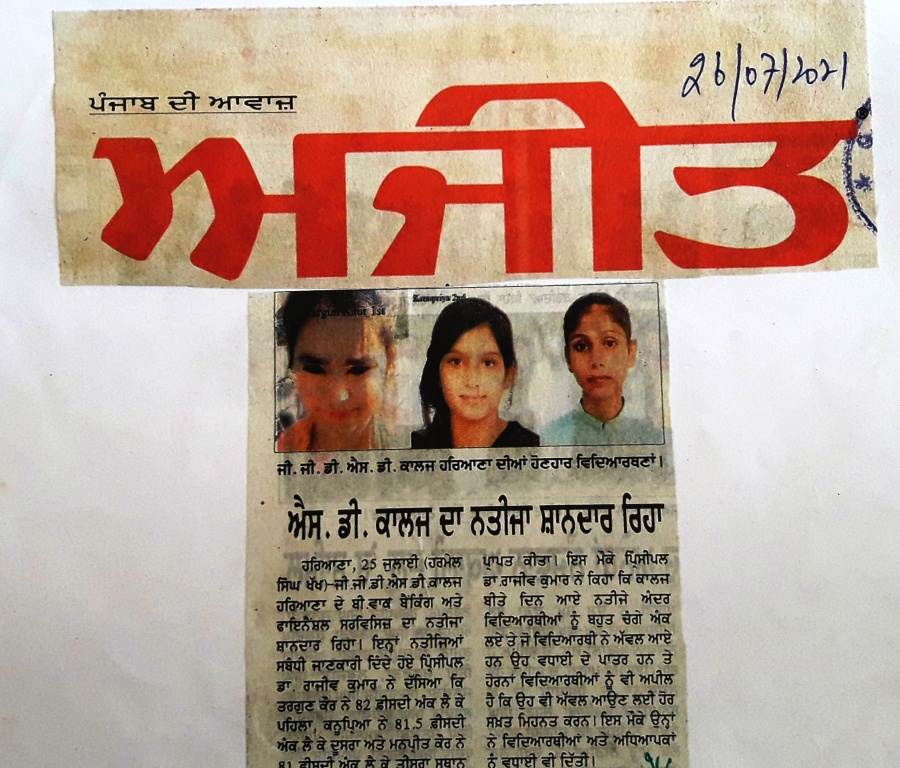 26/07/2021
ਪੰਜਾਬ ਦੀ ਆਵਾਜ਼
ਅਜੀਤ
Kanupriya 2nd
ਜੀ. ਜੀ. ਡੀ. ਐਸ. ਡੀ. ਕਾਲਜ ਹਰਿਆਣਾ ਦੀਆਂ ਹੋਣਹਾਰ ਵਿਦਿਆਰਥਣਾਂ।
ਐਸ. ਡੀ. ਕਾਲਜ ਦਾ ਨਤੀਜਾ ਸ਼ਾਨਦਾਰ ਰਿਹਾ
ਹਰਿਆਣਾ, 25 ਜੁਲਾਈ (ਹਰਮੇਲ
ਸਿੰਘ ਖੱਖ)-ਜੀ.ਜੀ.ਡੀ.ਐਸ.ਡੀ.ਕਾਲਜ
ਹਰਿਆਣਾ ਦੇ ਬੀ.ਵਾਕ ਬੈਂਕਿੰਗ ਅਤੇ
ਫਾਇਨੈਂਸ਼ਲ ਸਰਵਿਸਿਜ਼ ਦਾ ਨਤੀਜਾ
ਸ਼ਾਨਦਾਰ ਰਿਹਾ। ਇਨ੍ਹਾਂ ਨਤੀਜਿਆਂ
ਸਬੰਧੀ ਜਾਣਕਾਰੀ ਦਿੰਦੇ ਹੋਏ ਪ੍ਰਿੰਸੀਪਲ
ਡਾ. ਰਾਜੀਵ ਕੁਮਾਰ ਨੇ ਦੱਸਿਆ ਕਿ
ਤਰਗੁਣ ਕੌਰ ਨੇ 82 ਫ਼ੀਸਦੀ ਅੰਕ ਲੈ ਕੇ
ਪਹਿਲਾ, ਕਨੂਪ੍ਰਿਆ ਨੇ 81.5 ਫ਼ੀਸਦੀ
ਅੰਕ ਲੈ ਕੇ ਦੂਸਰਾ ਅਤੇ ਮਨਪ੍ਰੀਤ ਕੌਰ ਨੇ
81 ਫ਼ੀਸਦੀ ਅੰਕ ਲੈ ਕੇ ਤੀਸਰਾ ਸਥਾਨ
ਪ੍ਰਾਪਤ ਕੀਤਾ। ਇਸ ਮੌਕੇ ਪ੍ਰਿੰਸੀਪਲ
ਡਾ.ਰਾਜੀਵ ਕੁਮਾਰ ਨੇ ਕਿਹਾ ਕਿ ਕਾਲਜ
ਬੀਤੇ ਦਿਨ ਆਏ ਨਤੀਜੇ ਅੰਦਰ
ਵਿਦਿਆਰਥੀਆਂ ਨੂੰ ਬਹੁਤ ਚੰਗੇ ਅੰਕ
ਲਏ ਤੇ ਜੋ ਵਿਦਿਆਰਥੀ ਨੇ ਅੱਵਲ ਆਏ
ਹਨ ਉਹ ਵਧਾਈ ਦੇ ਪਾਤਰ ਹਨ ਤੇ
ਹੋਰਨਾਂ ਵਿਦਿਆਰਥੀਆਂ ਨੂੰ ਵੀ ਅਪੀਲ
ਹੈ ਕਿ ਉਹ ਵੀ ਅੱਵਲ ਆਉਣ ਲਈ ਹੋਰ
ਸਖ਼ਤ ਮਿਹਨਤ ਕਰਨ। ਇਸ ਮੌਕੇ ਉਨ੍ਹਾਂ
ਨੇ ਵਿਦਿਆਰਥੀਆਂ ਅਤੇ ਅਧਿਆਪਕਾਂ
ਨੂੰ ਵਧਾਈ ਵੀ ਦਿੱਤੀ।